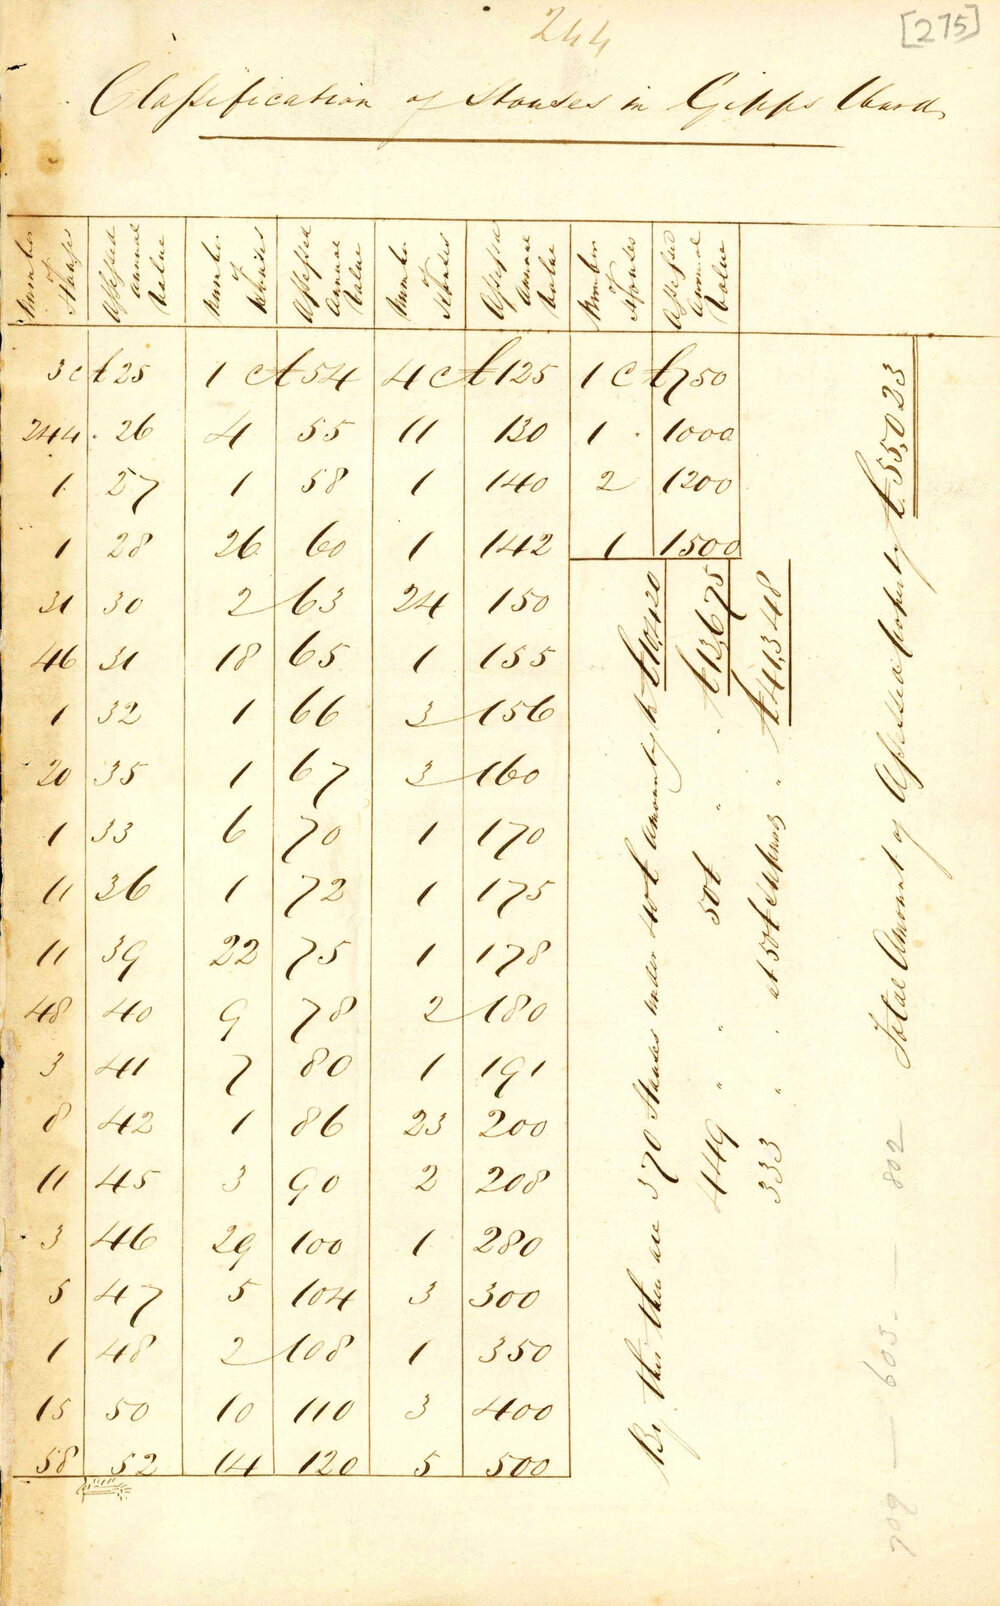 244
[275]
Classification of Houses in Gipps Ward
Number of Houses | Assessed annual Value | Number of Houses | Assessed annual Value | Number of Houses | Assessed annual Value | Number of Houses | Assessed annual Value
3 at 25 | 1 at 54 | 4 at 125 | 1 at 750
244 . 26 | 4 55 | 11 130 | 1 . 1000
1 27 | 1 58 | 1 140 | 2 1200
1 28 | 26 60 | 1 142 | 1 1500
31 30 | 2 63 | 24 150
46 31 | 18 65 | 1 155
1 32 | 1 66 | 3 156
20 35 | 1 67 | 3 160
1 33 | 6 70 | 1 170
11 36 | 1 72 | 1 175
11 39 | 22 75 | 1 178
48 40 | 9 78 | 2 180
3 41 | 7 80 | 1 191
8 42 | 1 86 | 23 200
11 45 | 3 90 | 2 208
3 46 | 29 100 | 1 280
5 47 | 5 104 | 3 300
1 48 | 2 108 | 1 350
15 50 | 10 110 | 3 400
58 52 | 14 120 | 5 500
By this there are 370 Houses under 40£ amounting to £10,420
449 " " 50£ " " £13,675
333 " . at 50£ & upwards " £41,348
Total Amount of Assessed property £55,023
709 — 603. — 802